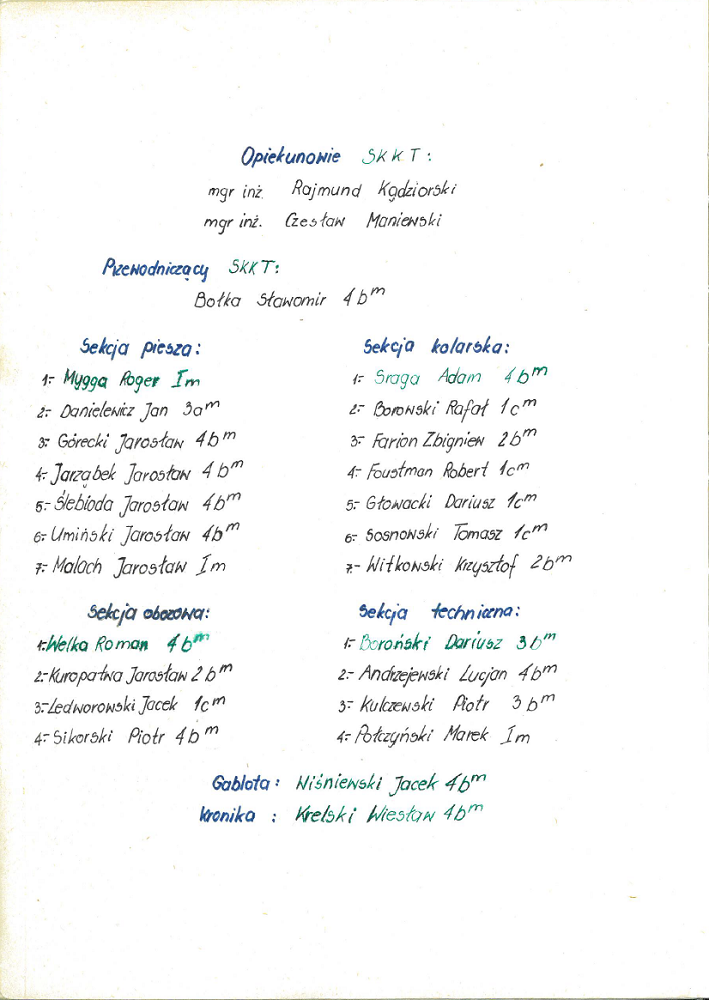 Opiekunowie SKKT:
mgr inż. Rajmund Kądziorski
mgr inż. Czesław Maniewski
Przewodniczący SKKT:
Bołka Sławomir 4bm
Sekcja piesza:
1.- Mygga Roger Im
2.- Danielewicz Jan 3am
3.- Górecki Jarosław 4bm
4.- Jarząbek Jarosław 4bm
5.- Ślebioda Jarosław 4bm
6.- Umiński Jarosław 4bm
7.- Malach Jarosław Im
Sekcja kolarska:
1.- Sraga Adam 4bm
2.- Borowski Rafał 1cm
3.- Farion Zbigniew 2bm
4.- Foustman Robert 1cm
5.- Głowacki Dariusz 1cm
6.- Sosnowski Tomasz 1cm
7.- Witkowski Krzysztof 2bm
Sekcja obozowa:
1.- Welka Roman 4bm
2.- Kuropatwa Jarosław 2bm
3.- Ledworowski Jacek 1cm
4.- Sikorski Piotr 4bm
Sekcja techniczna:
1.- Boroński Dariusz 3bm
2.- Andrzejewski Lucjan 4bm
3.- Kulczewski Piotr 3bm
4.- Połczyński Marek Im
Gablota: Wiśniewski Jacek 4bm
Kronika : Krelski Wiesław 4bm